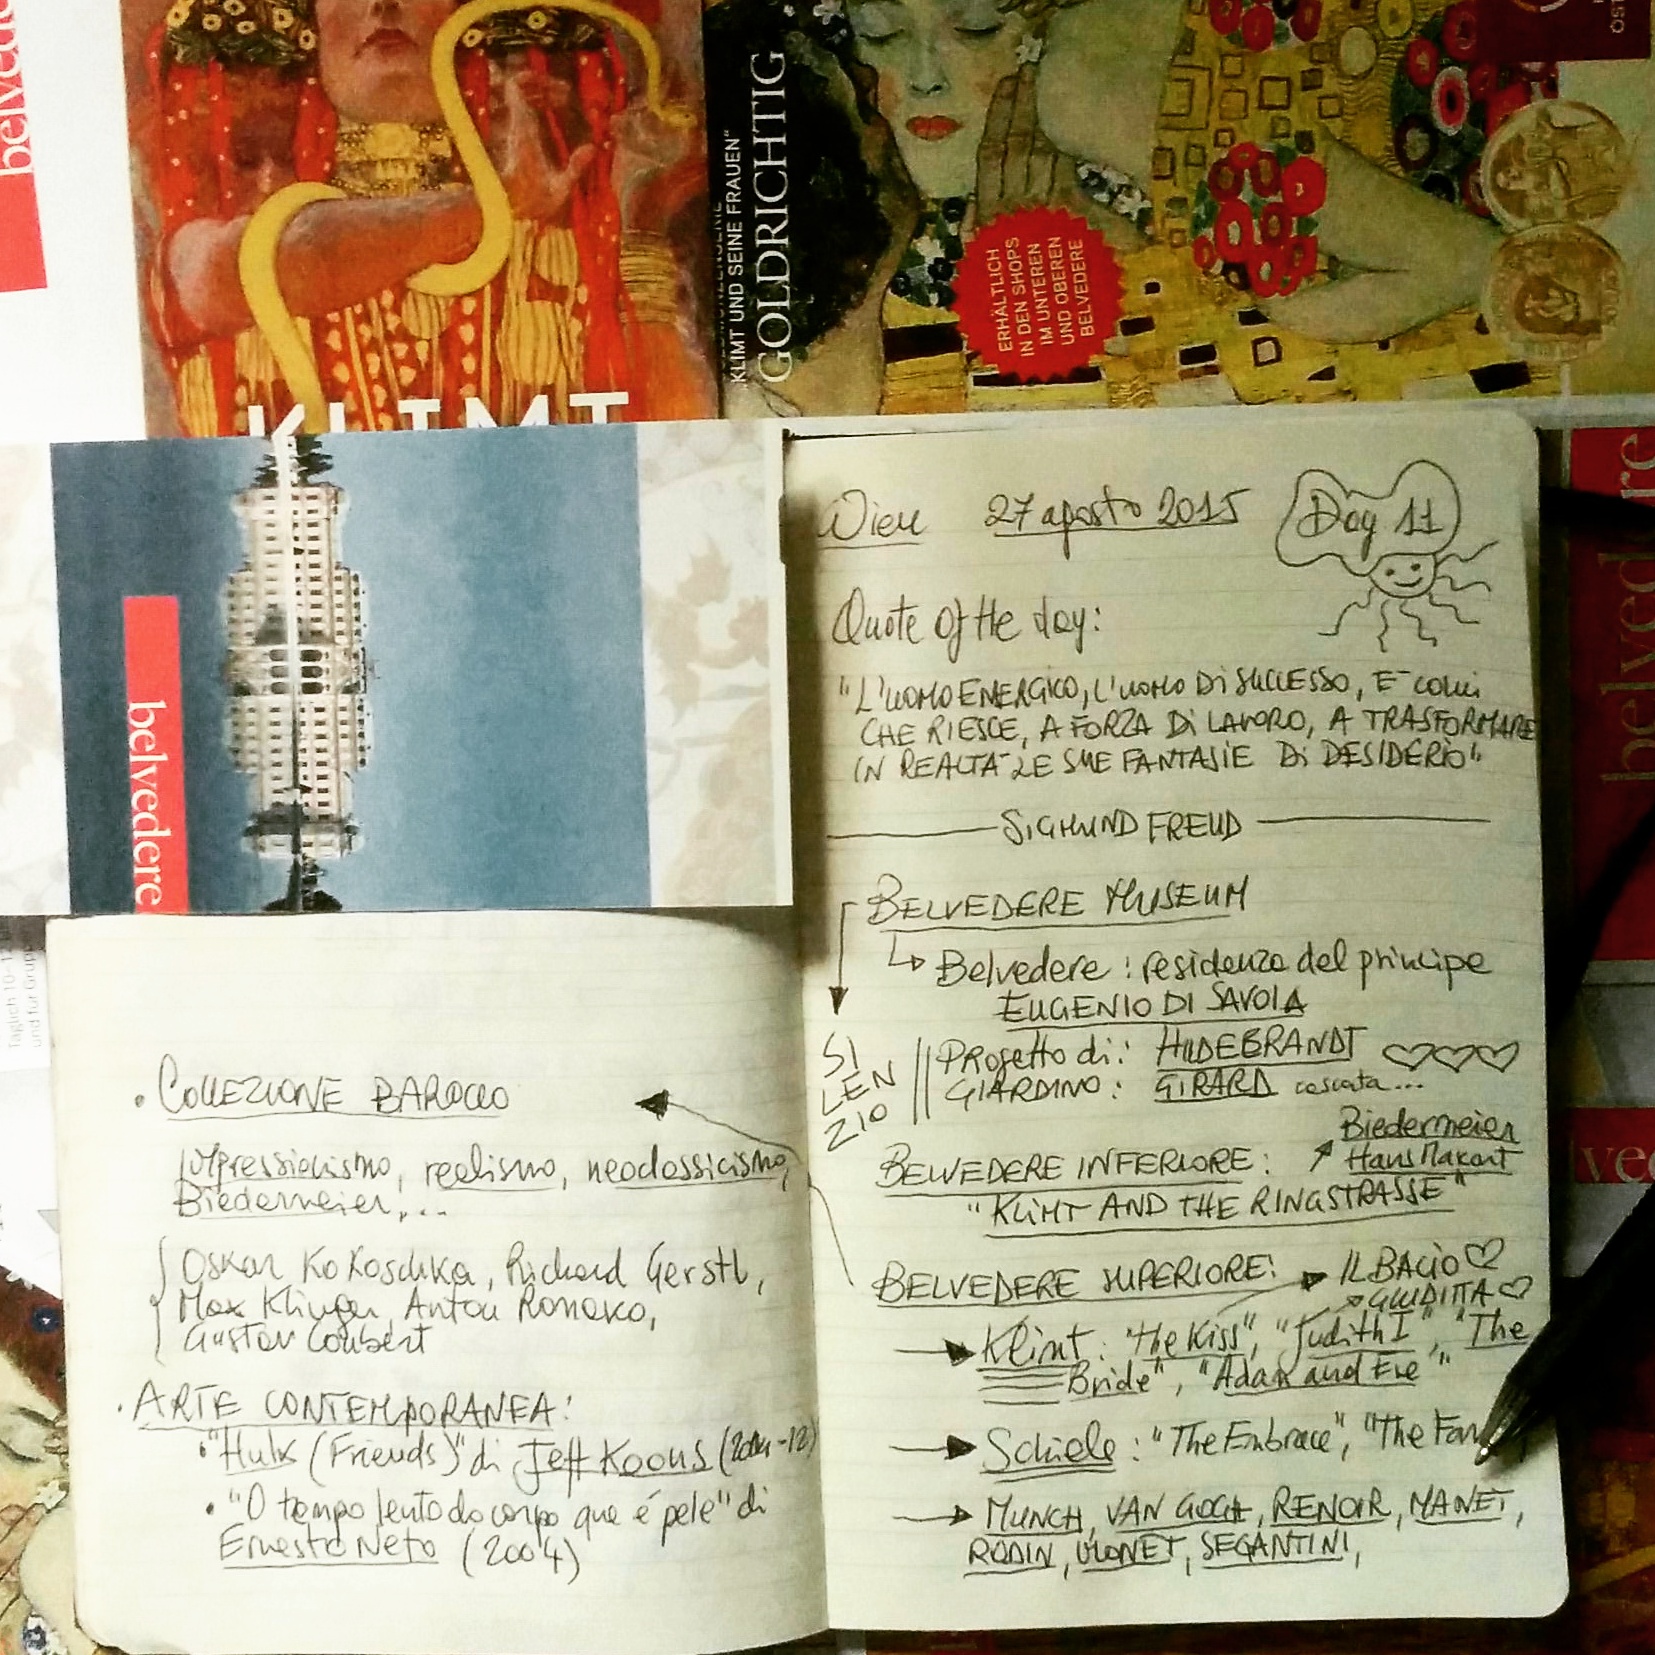 belvedere
KLIMT
„KLIMT UND SEINE FRAUEN“
GOLDRICHTIG
ERHÄLTLICH
IN DEN SHOPS
IM UNTEREN
UND OBEREN
BELVEDERE
belvedere
belvedere
Täglich 10–1
und für Grupp
Wien 27 agosto 2015 Day 11
Quote of the day:
"L'UOMO ENERGICO, L'UOMO DI SUCCESSO, E' COLUI
CHE RIESCE, A FORZA DI LAVORO, A TRASFORMARE
IN REALTA' LE SUE FANTASIE DI DESIDERIO"
SIGMUND FREUD
BELVEDERE MUSEUM
Belvedere: residenza del principe
EUGENIO DI SAVOIA
SI
LEN
ZIO
PROgetto di: HILDEBRANDT
GIARDINO: GIRARD cascata...
Biedermeier
Hans Makart
BELVEDERE INFERIORE:
"KLIMT AND THE RINGSTRASSE"
BELVEDERE SUPERIORE: IL BACIO
GIUDITTA
Klimt: "The Kiss", "Judith I", "The
Bride", "Adam and Eve"
Schiele: "The Embrace", "The Fam
MUNCH, VAN GOGH, RENOIR, MANET,
RODIN, MONET, SEGANTINI,
• COLLEZIONE BAROCCO
Impressionismo, realismo, neoclassicismo,
Biedermeier,...
Oskar Kokoschka, Richard Gerstl,
Max Klinger, Anton Romako,
Gustav Courbet
• ARTE CONTEMPORANEA:
• "Hulk (Friends)" di Jeff Koons (2004-12)
• "O tempo lento do corpo que é pele" di
Ernesto Neto (2004)